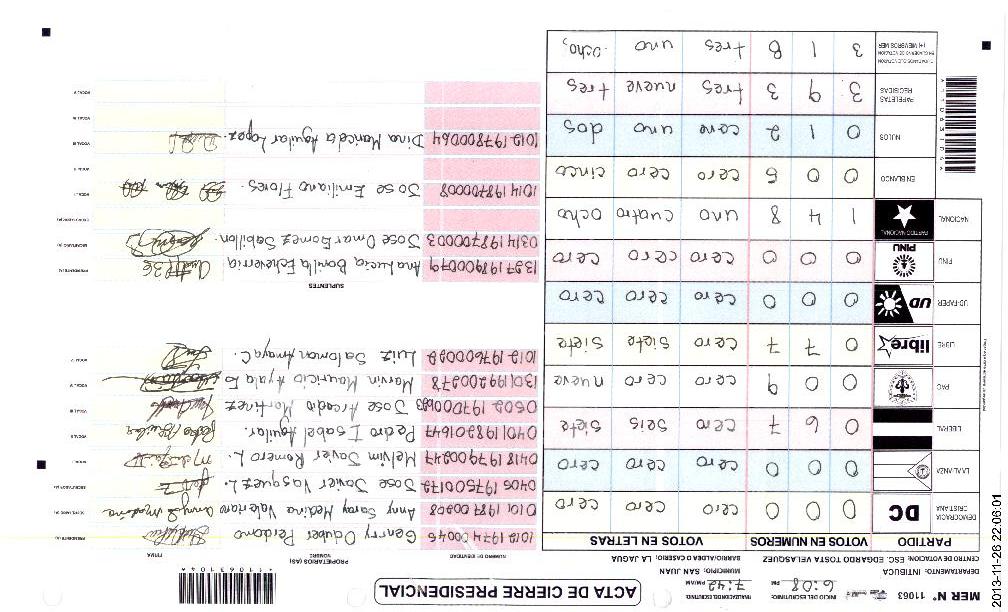 MER N° 11063 INICIO DEL ESCRUTINIO: 6:08 PM
FINALIZACION DEL ESCRUTINIO: 7:42 PM/AM
ACTA DE CIERRE PRESIDENCIAL
DEPARTAMENTO: INTIBUCA MUNICIPIO: SAN JUAN
CENTRO DE VOTACION: ESC. EDGARDO TOSTA VELASQUEZ BARRIO/ALDEA O CASERIO: LE JAGUA
PARTIDO VOTOS EN NUMEROS VOTOS EN LETRAS
DEMOCRACIA CRISTIANA DC 0 0 0 cero cero cero
LA ALIANZA 0 0 0 cero cero cero
LIBERAL 0 6 7 cero seis siete
PAC 0 0 9 cero cero nueve
LIBRE libre 0 7 7 cero siete siete
UD-FAPER UD 0 0 0 cero cero cero
PINU PINU 0 0 0 cero cero cero
NACIONAL PARTIDO NACIONAL 1 4 8 uno cuatro ocho
EN BLANCO 0 0 5 cero cero cinco
NULOS 0 1 2 cero uno dos
PAPELETAS RECIBIDAS 3 9 3 tres nueve tres
3 1 8 tres uno ocho,
NUMERO DE IDENTIDAD PROPIETARIOS (AS) NOMBRE FIRMA
1012 1974 00046 Genrry Oduber Perdomo PRESIDENTE(A)
0101 1987 00908 Anny Saray Medina Valeriano
0406 1975 00172 Jose Javier Vasquez L. SECRETARIO (A)
0418 1979 00247 Melvim Javier Romero L. VOCAL I
0401 1982 01647 Pedro Isabel Aguilar. VOCAL II
0502 1970 00693 Jose Arcadio Martinez VOCAL III
1301 1992 00378 Marvin Mauricio Ayala B VOCAL IV
1012 1976 00092 Luiz Saloman Amaya C. VOCAL V
SUPLENTES
1327 1989 00079 Ana Lucia Bonilla Echeverria PRESIDENTE(A)
0314 1987 00003 Jose Omar Gomez Sabillon. SECRETARIO (A)
1014 1987 00008 Jose Emiliano Flores. VOCAL I
1012 1978 00064 Dina Maricela Aguilar Lopez. VOCAL III
VOCAL IV
VOCAL V
2013-11-26 22:06:01